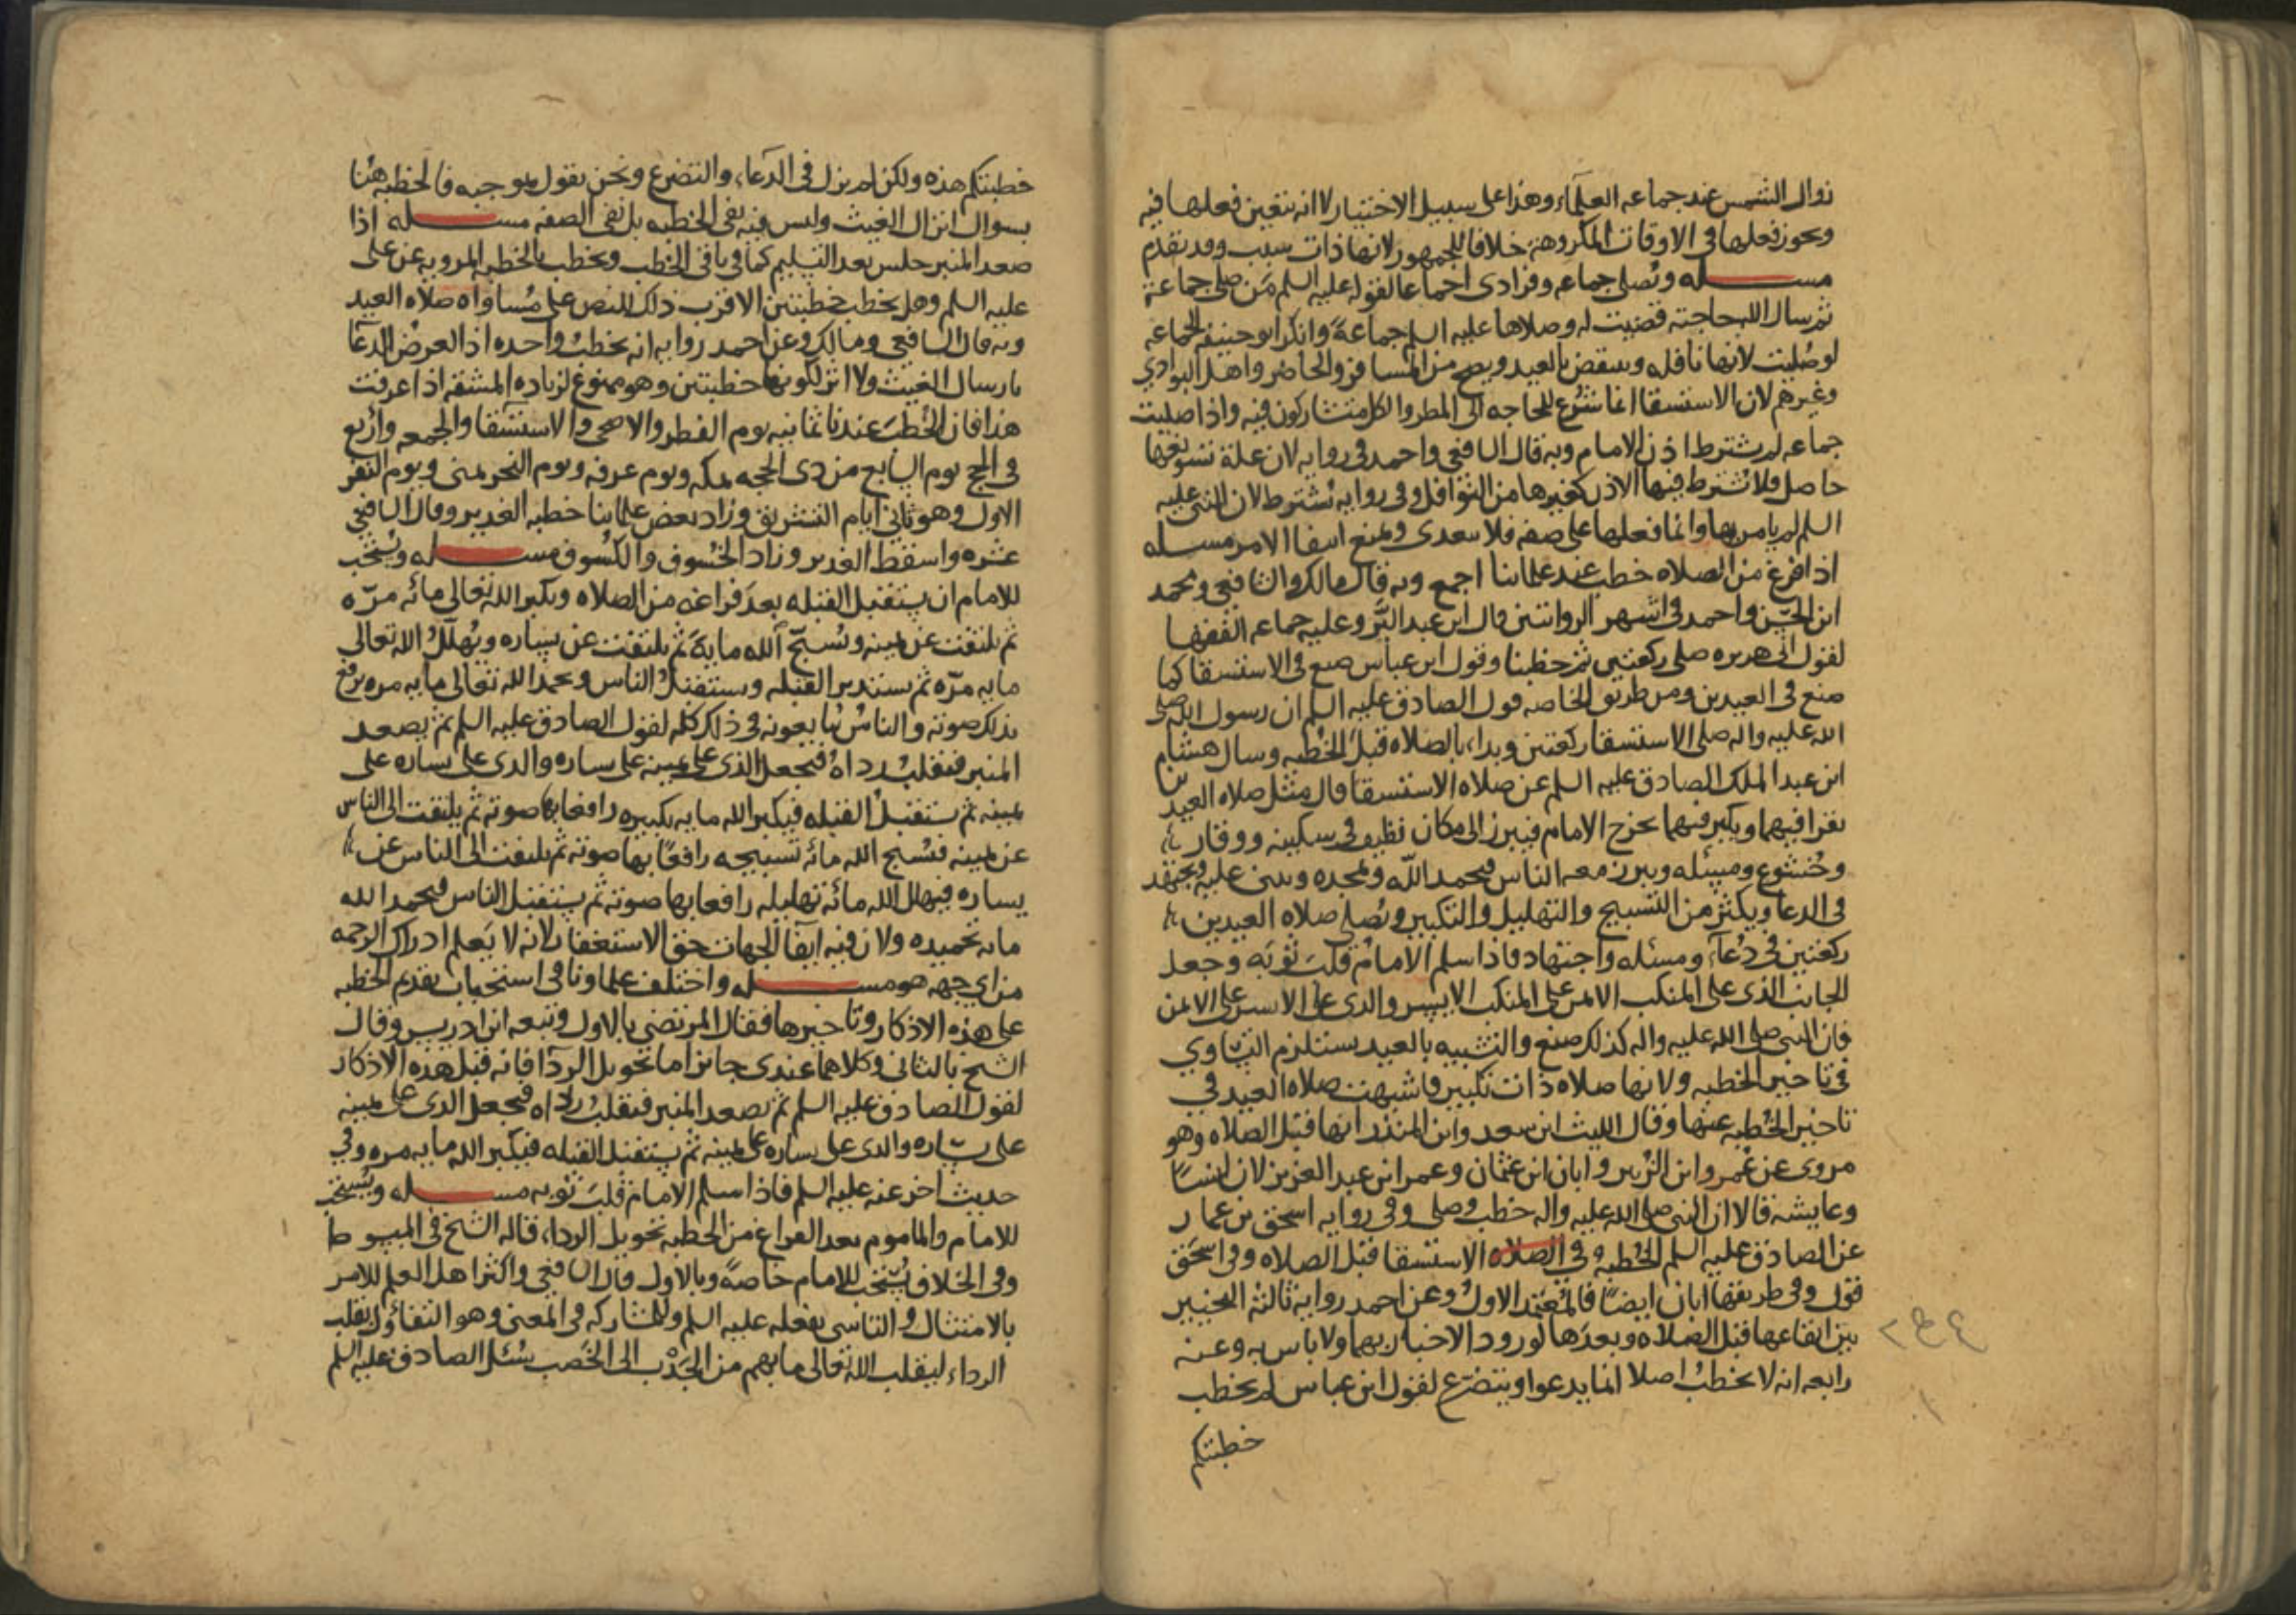 زوال الشمس عند جماعه العلماء وهذا على سبيل الاختيار لا انه يتعين فعلها فيه
ويجوز فعلها فى الاوقات المكروهة خلافا للجمهور لانها ذات سبب وقد تقدم
مسـله وتصلى جماعه وفرادى اجماعا لقوله عليه السلم من صلى جماعة
ثم سال الله حاجته قضيت له وصلاها عليه السلم جماعةً وانكر ابو حنيفه الجماعه
لو صليت لانها نافله وينقض بالعيد ويصح من المسافر والحاضر واهل البوادي
وغيرهم لان الاستسقا انما شرع للحاجه الى المطر والكل متشاركون فيه واذا صليت
جماعه لم يشترط اذن الامام وبه قال الشافعي واحمد فى روايه لان علة تسويغها
حاصل فلا يشترط فيها الاذن كغيرها من النوافل وفى روايه يشترط لان النبى عليه
السلم لم يامر بها وانما فعلها على صفه فلا يتعدى ويمنع انتفا الامر مسـله
اذا فرغ من الصلاه خطب عند علمائنا اجمع وبه قال مالك والشافعي ومحمد
ابن الحسن واحمد فى اشهر الروايتين قال ابن عبد البر وعليه جماعه الفقها
لقول ابى هريره صلى ركعتين ثم خطبنا وقول ابن عباس صنع فى الاستسقا كما
صنع فى العيدين ومن طريق الخاصه قول الصادق عليه السلم ان رسول الله صلى
الله عليه واله صلى الاستسقا ركعتين وبداء بالصلاه قبل الخطبه وسال هشام
ابن عبد الملك الصادق عليه السلم عن صلاه الاستسقا قال مثل صلاه العيدين
يقرا فيهما ويكبر فيهما يخرج الامام فيبرز الى مكان نظيف فى سكينه ووقار
وخشوع ومسئله ويبرز معه الناس فيحمد الله ويمجده ويثنى عليه ويجتهد
فى الدعا ويكثر من التسبيح والتهليل والتكبير ويصلى صلاه العيدين
ركعتين فى دعاء ومسئله واجتهاد فاذا سلم الامام قلب ثوبه وجعل
الجانب الذى على المنكب الايمن على المنكب الايسر والذى على الايسر على الايمن
فان النبى صلى الله عليه واله كذلك صنع والتشبيه بالعيد يستلزم التساوي
فى تاخير الخطبه ولانها صلاه ذات تكبير فاشبهت صلاه العيد في
تاخير الخطبه عنها وقال الليث ابن سعد وابن المنذر انها قبل الصلاه وهو
مروى عن عمر وابن الزبير وابان ابن عثمان وعمر ابن عبد العزيز لان انسًا
وعايشه قالا ان النبى صلى الله عليه واله خطب وصلى وفى روايه اسحق بن عمار
عن الصادق عليه السلم الخطبه فى الصلاه الاستسقا قبل الصلاه وفى اسحق
قول وفى طريقها ابان ايضًا فالمعتمد الاول وعن احمد روايه ثالثه التخيير
بين ايقاعها قبل الصلاه وبعدها لورود الاخبار بهما ولا باس به وعنه
رابعه انه لا يخطب اصلا انما يدعوا ويتضرع لقول ابن عباس لم يخطب
خطبتكم
خطبتكم هذه ولكن لم يزل فى الدعاء والتضرع ونحن نقول بموجبه فالخطبه هنا
بسوال انزال الغيث وليس فيه نفى الخطبه بل نفى الصفه مسـله اذا
صعد المنبر جلس بعد التسليم كما فى باقى الخطب ويخطب بالخطبه المرويه عن على
عليه السلم وهل يخطب خطبتين الاقرب ذلك للنص على مساواه صلاه العيد
وبه قال الشافعي ومالك وعن احمد روايه انه يخطب واحده اذ الغرض الدعا
بارسال الغيث ولا اثر لكونها خطبتين وهو ممنوع لزياده المشقه اذا عرفت
هذا فان الخطب عندنا ثمانيه يوم الفطر والاضحى والاستسقا والجمعه واربع
فى الحج يوم السابع من ذى الحجه بمكه ويوم عرفه ويوم النحر بمنى ويوم النفر
الاول وهو ثانى ايام التشريق وزاد بعض علمائنا خطبه الغدير وقال الشافعي
عشره واسقط الغدير وزاد الخسوف والكسوف مسـله ويستحب
للامام ان يستقبل القبله بعد فراغه من الصلاه ويكبر الله تعالى مائه مرّه
ثم يلتفت عن يمينه ويسبح الله مايه ثم يلتفت عن يساره ويهلل الله تعالى
مايه مرّه ثم يستدبر القبله ويستقبل الناس ويحمد الله تعالى مايه مره يرفع
بذلك صوته والناس يتابعونه فى ذلك كله لقول الصادق عليه السلم ثم يصعد
المنبر فيقلب رداه فيجعل الذى على يمينه على يساره والذى على يساره على
يمينه ثم يستقبل القبله فيكبر الله مايه تكبيره رافعا بها صوته ثم يلتفت الى الناس
عن يمينه فيسبح الله مائه تسبيحه رافعًا بها صوته ثم يلتفت الى الناس عن
يساره فيهلل الله مائه تهليله رافعا بها صوته ثم يستقبل الناس فيحمد الله
مايه تحميده ولان فيه ايفا الجهات حق الاستغفار لانه لا يعلم ادراك الرحمه
من اي جهه هو مسـله واختلف علماونا فى استحباب تقديم الخطبه
على هذه الاذكار وتاخيرها فقال المرتضى بالاول وتبعه ابن ادريس وقال
الشيخ بالثانى وكلاهما عندى جائز اما تحويل الردا فانه قبل هذه الاذكار
لقول الصادق عليه السلم ثم يصعد المنبر فيقلب رداه فيجعل الذى على يمينه
على يساره والذى على يساره على يمينه ثم يستقبل القبله فيكبر الله مايه مره وفي
حديث اخر عنه عليه السلم فاذا سلم الامام قلب ثوبه مسـله ويستحب
للامام والماموم بعد الفراغ من الخطبه تحويل الرداء قاله الشيخ فى المبسوط
وفى الخلاف يستحب للامام خاصةً وبالاول قال الشافعي واكثر اهل العلم للامر
بالامتثال والتاسى بفعله عليه السلم وللمشاركه فى المعنى وهو التفاؤل بقلب
الرداء ليقلب الله تعالى ما بهم من الجدب الى الخصب سئل الصادق عليه السلم